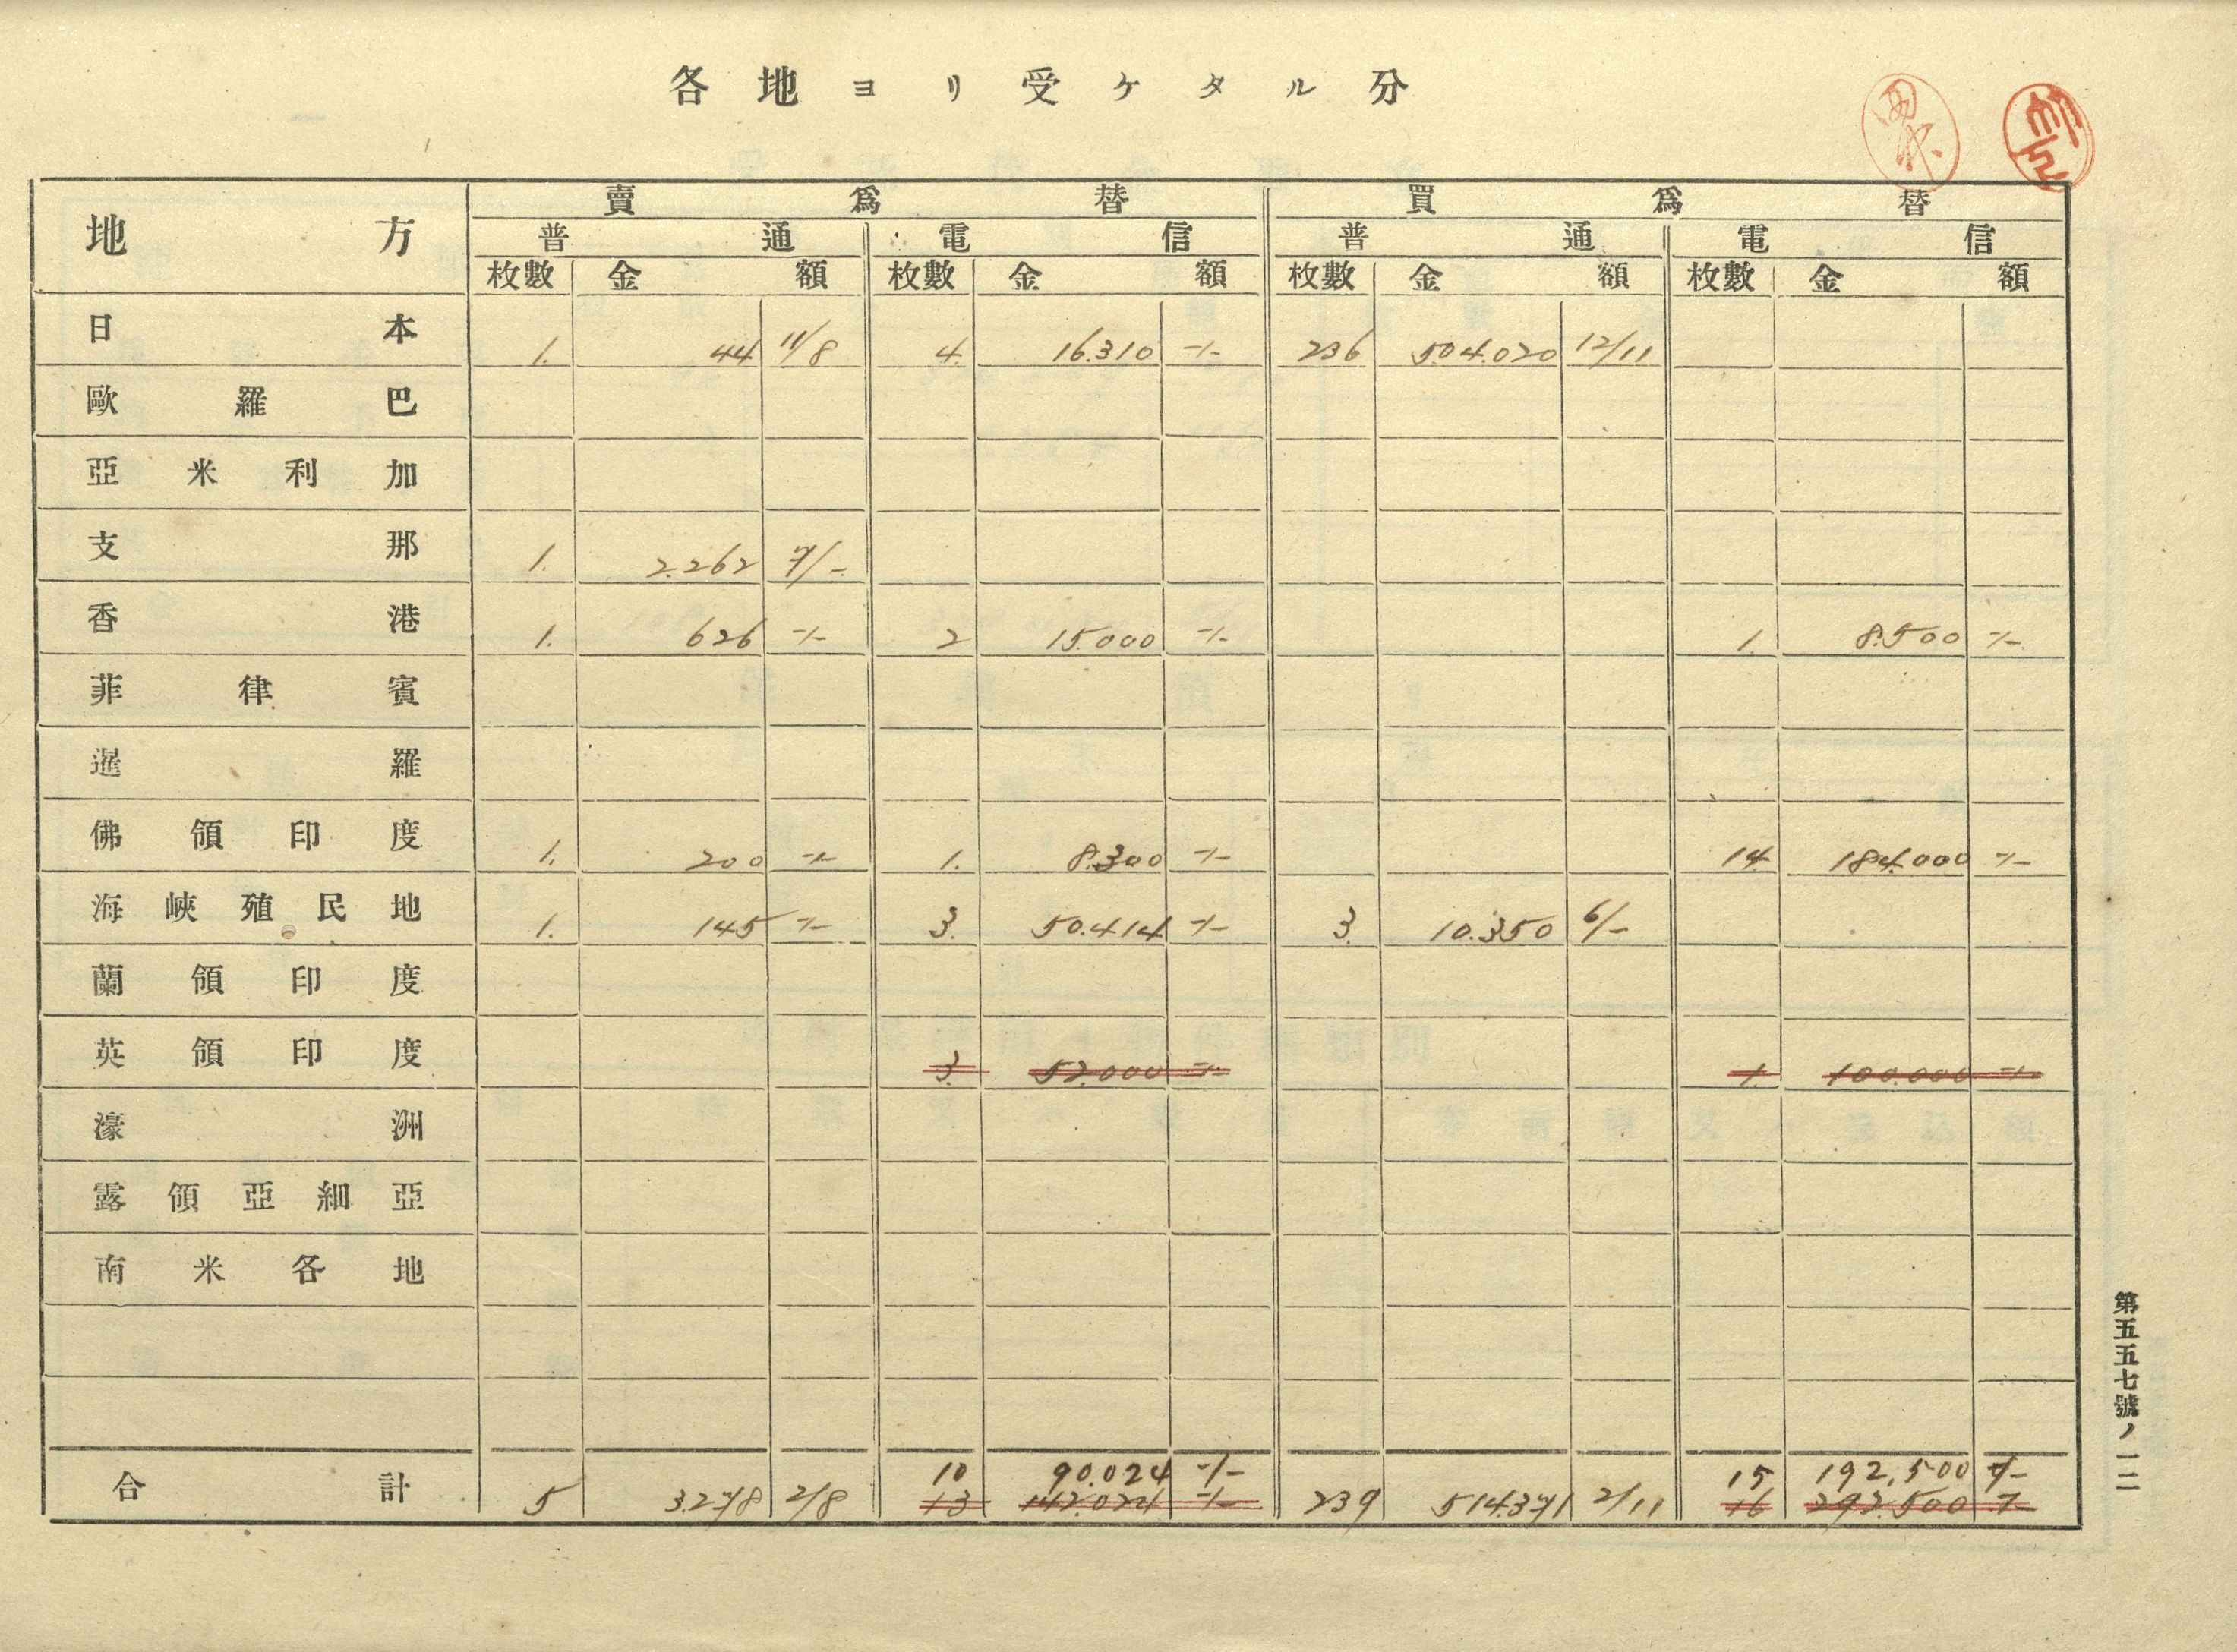 各地ヨリ受ケタル分
地方 賣爲替 買爲替
普通 電信 普通 電信
枚數 金額 枚數 金額 枚數 金額 枚數 金額
日本 1. 44 11/8 4. 16.310 -/- 236 504.020 12/11
歐羅巴
亞米利加
支那 1. 2.262 7/-
香港 1. 626 -/- 2 15.000 -/- 1. 8.500 -/-
菲律賓
暹羅
佛領印度 1. 200 -/- 1. 8.300 -/- 14. 184.000 -/-
海峽殖民地 1. 145 -/- 3. 50.414 -/- 3. 10.350 6/-
蘭領印度
英領印度 3. 52.000 -/- 1. 100.000 -/-
濠洲
露領亞細亞
南米各地
10 90.024 -/- 15 192.500 -/-
合計 5 3.278 2/8 13 142.024 -/- 239 514.371 2/11 16 292.500 -/-
第五五七號ノ一二